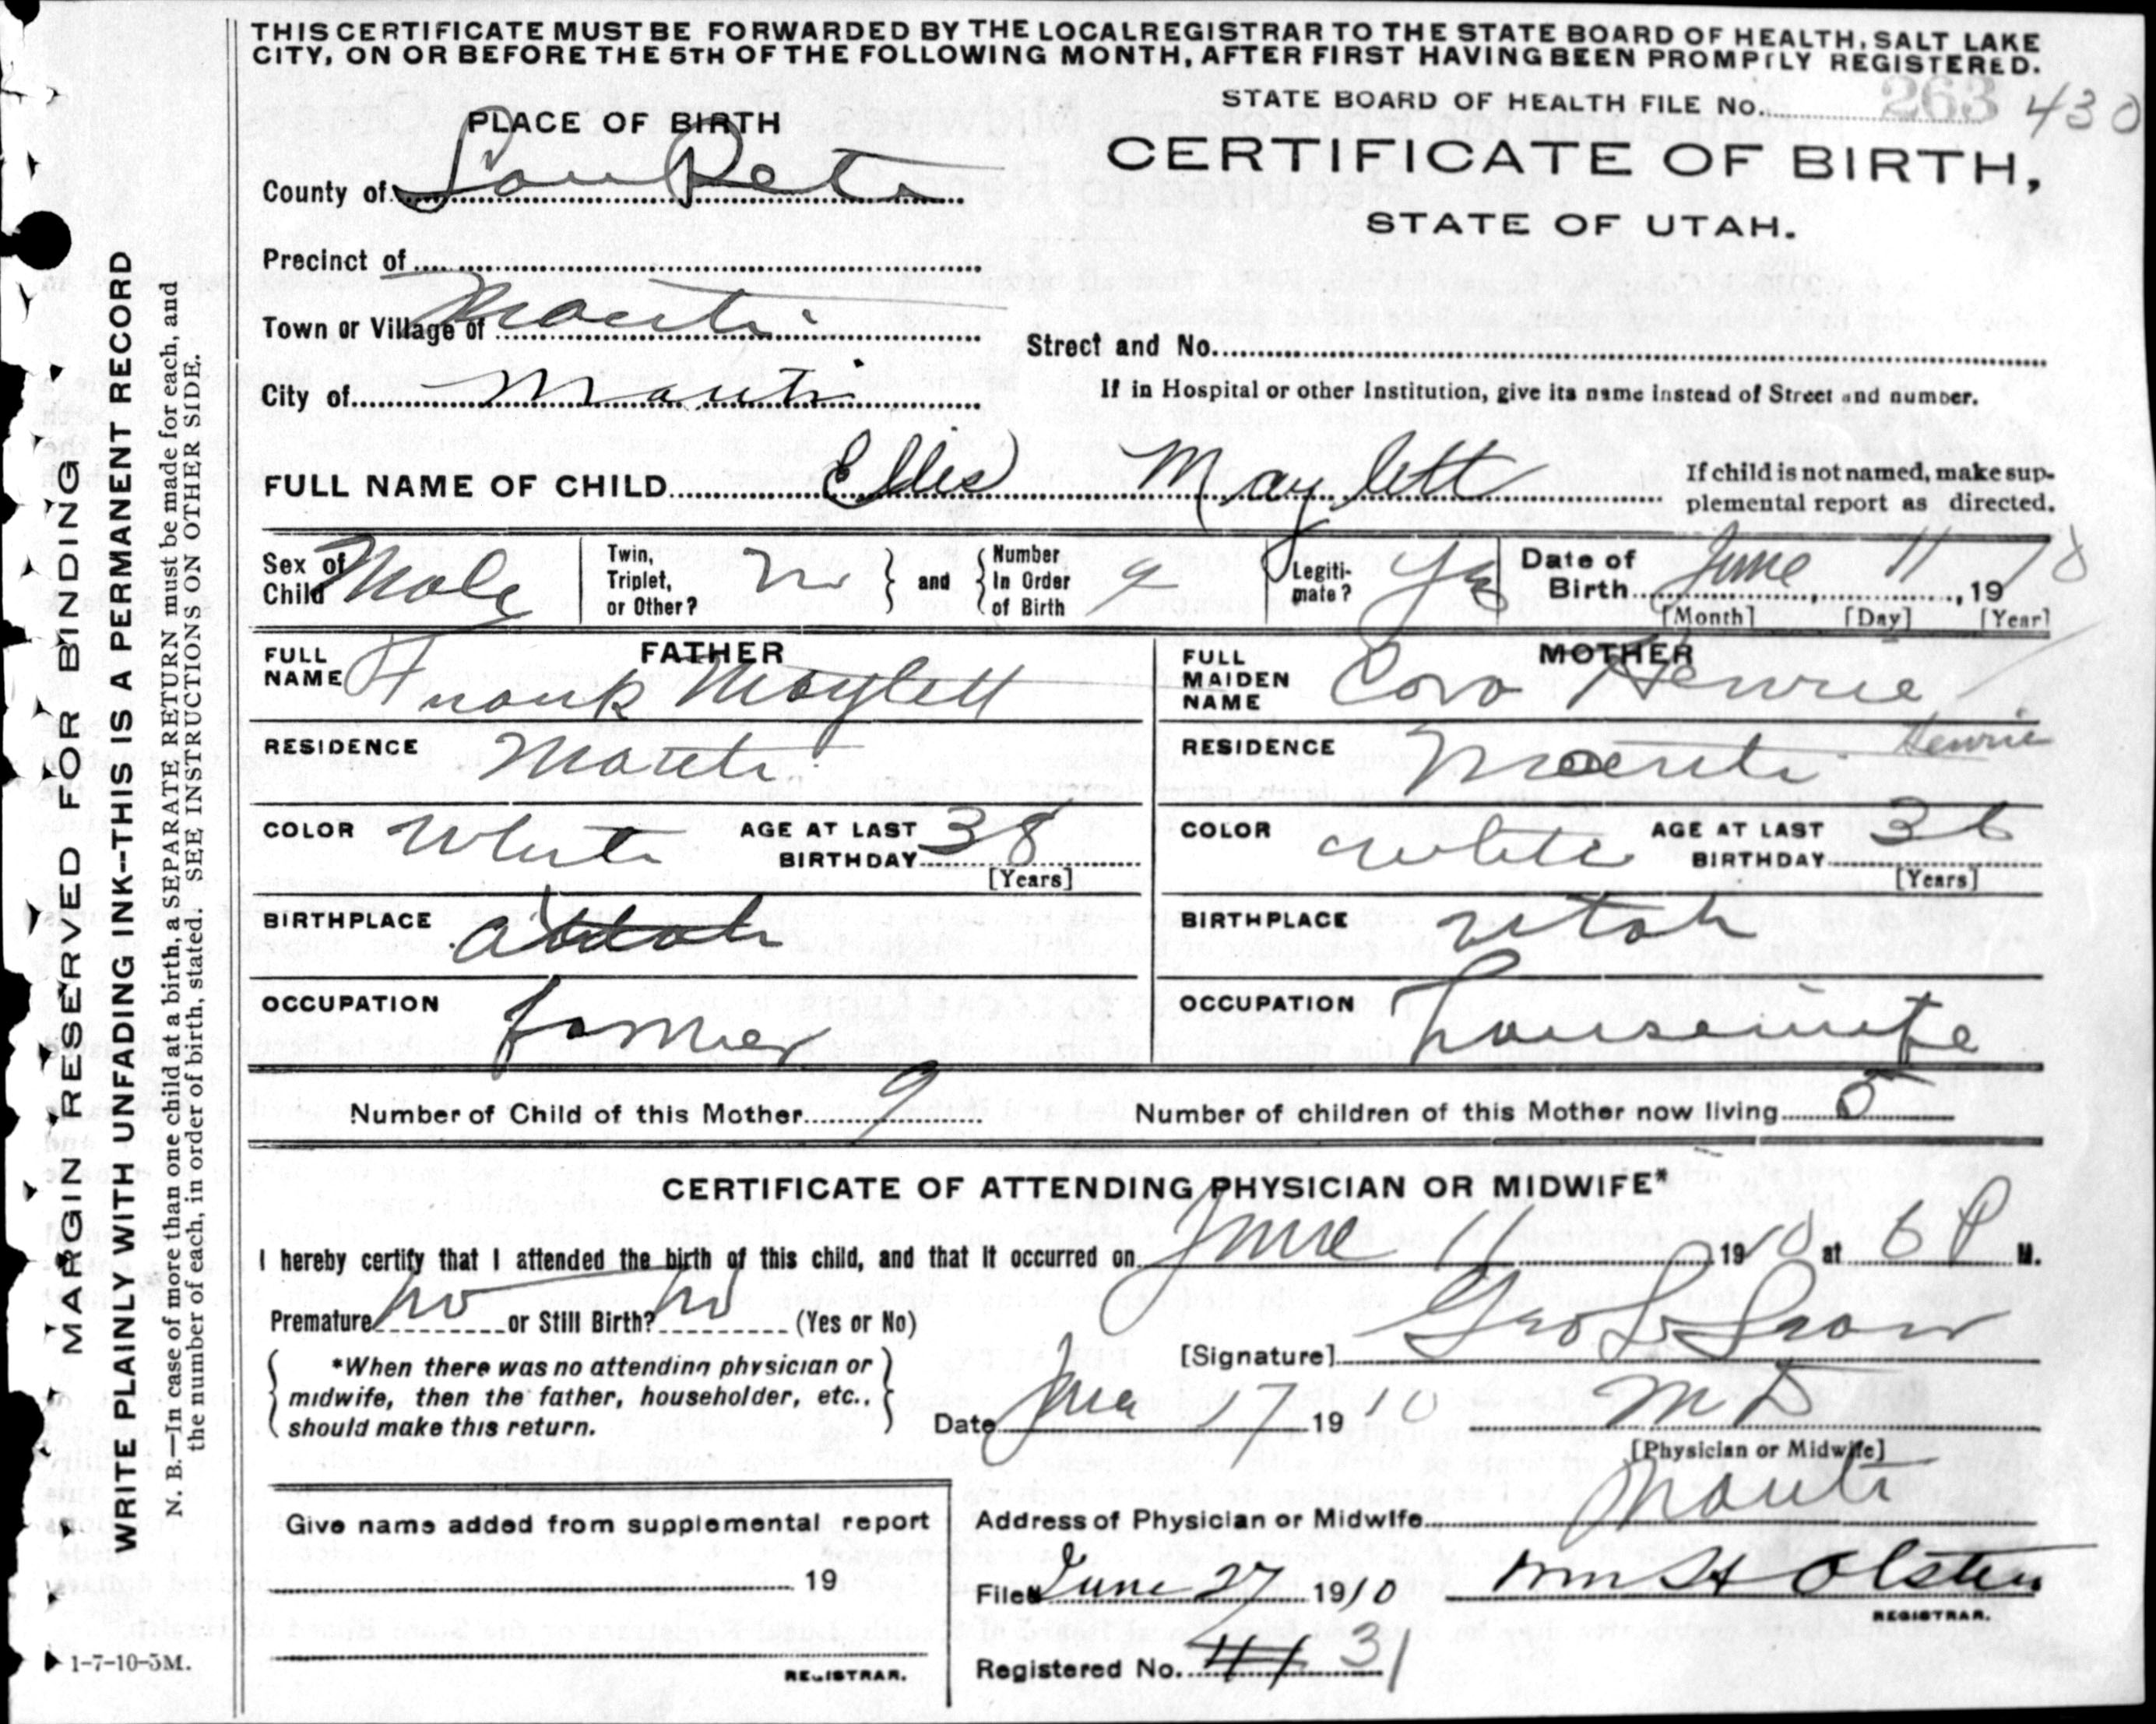 THIS CERTIFICATE MUST BE FORWARDED BY THE LOCAL REGISTRAR TO THE STATE BOARD OF HEALTH, SALT LAKE
CITY, ON OR BEFORE THE 5TH OF THE FOLLOWING MONTH, AFTER FIRST HAVING BEEN PROMPTLY REGISTERED.
STATE BOARD OF HEALTH FILE No. 263 430
PLACE OF BIRTH
CERTIFICATE OF BIRTH,
STATE OF UTAH.
County of SanPete
Precinct of
Town or Village of Manti
Street and No.
If in Hospital or other Institution, give its name instead of Street and number.
City of Manti
FULL NAME OF CHILD Ellis Maylett
If child is not named, make sup-
plemental report as directed.
Sex of Child Male
Twin, Triplet, or Other? no
and
Number In Order of Birth 9
Legiti-mate? Yes
Date of Birth June 11, 1910
[Month] [Day] [Year]
FATHER
FULL NAME Frank Maylett
MOTHER
FULL MAIDEN NAME Cora Henrie
Henrie
RESIDENCE Manti
RESIDENCE Manti
COLOR White AGE AT LAST BIRTHDAY 38
[Years]
COLOR white AGE AT LAST BIRTHDAY 36
[Years]
BIRTHPLACE Utah
BIRTHPLACE Utah
OCCUPATION farmer
OCCUPATION housewife
Number of Child of this Mother 9
Number of children of this Mother now living
CERTIFICATE OF ATTENDING PHYSICIAN OR MIDWIFE*
I hereby certify that I attended the birth of this child, and that it occurred on June 11 1910 at 6 P M.
Premature no or Still Birth? no (Yes or No)
[Signature] Geo L Snow
*When there was no attending physician or
midwife, then the father, householder, etc.,
should make this return.
Date June 17 1910 M D
[Physician or Midwife]
Give name added from supplemental report
19
REGISTRAR.
Address of Physician or Midwife Manti
Filed June 27 1910 Wm H Olsten
REGISTRAR.
Registered No. 41 31
MARGIN RESERVED FOR BINDING
WRITE PLAINLY WITH UNFADING INK--THIS IS A PERMANENT RECORD
N. B.—In case of more than one child at a birth, a SEPARATE RETURN must be made for each, and
the number of each, in order of birth, stated. SEE INSTRUCTIONS ON OTHER SIDE.
1-7-10-5M.